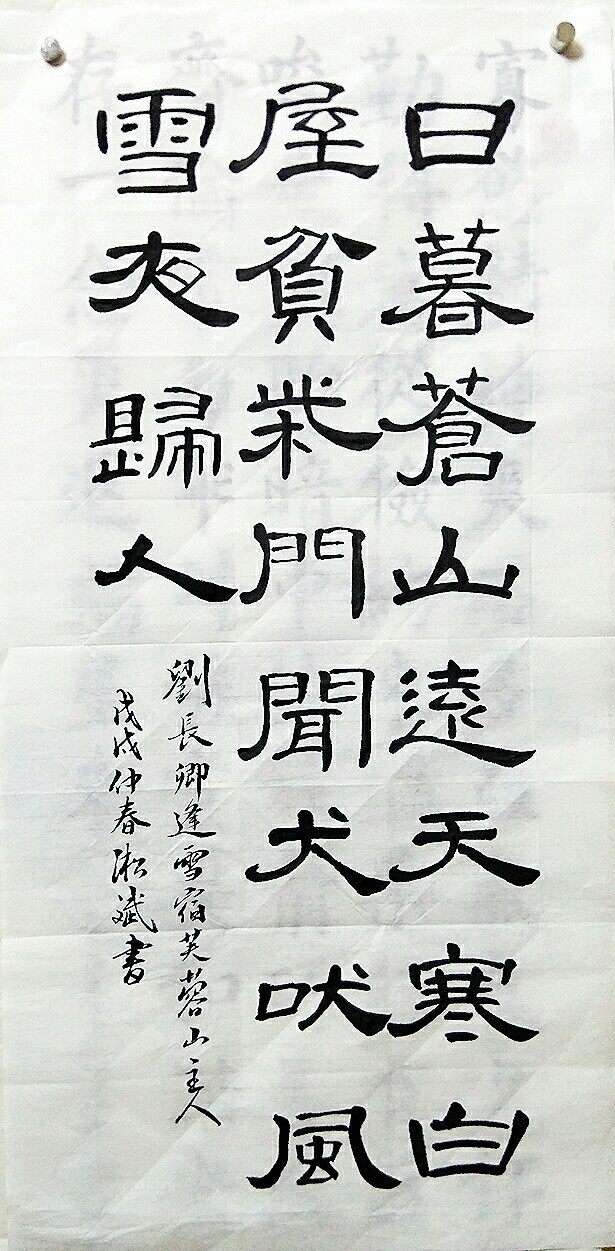 日暮蒼山遠天寒白
屋貧柴門聞犬吠風
雪夜歸人
劉長卿逢雪宿芙蓉山主人
戊戌仲春淞斌書